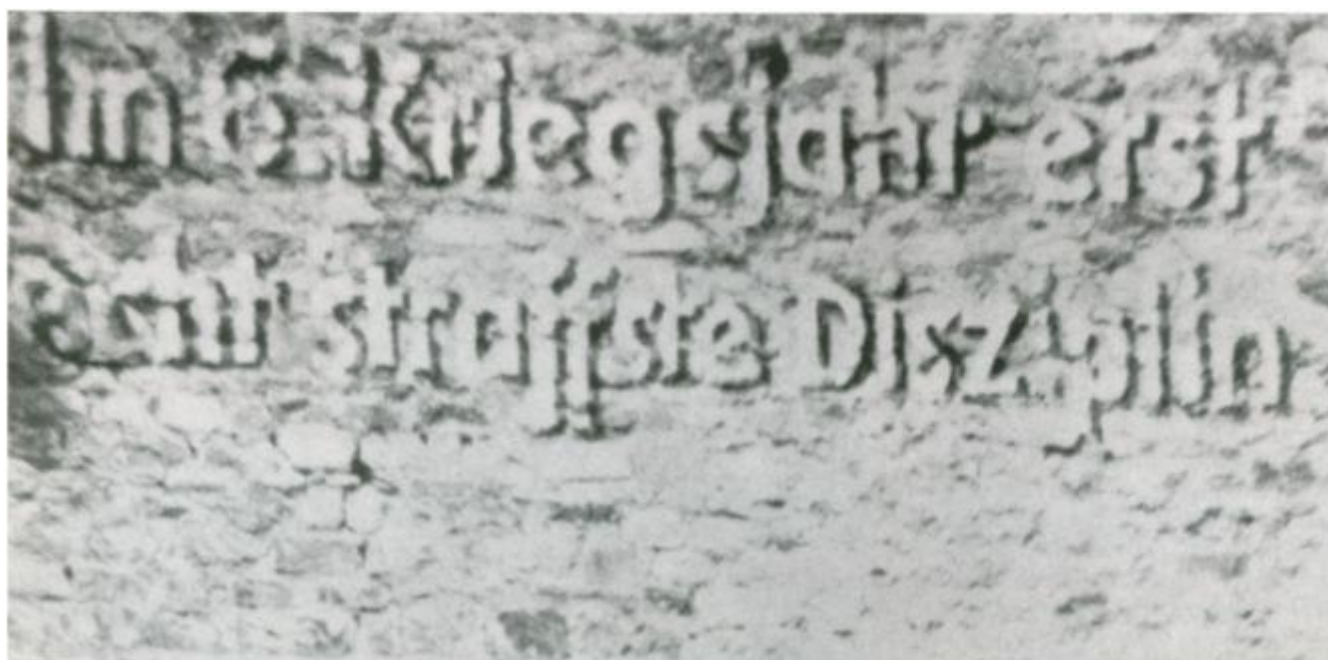 Im 6. Kriegsjahr erst
recht straffste Disziplin